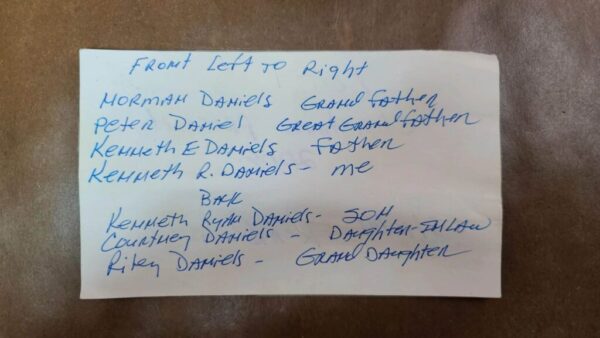 FRONT Left TO Right
NORMAN DANIELS GRAND father
PETER DANIEL GREAT GRANDfATHER
KENNETH E DANIELS fATHER
KENNETH R. DANIELS - ME
BACK
KENNETH RYAN DANIELS - SON
COURTNEY DANIELS - DAUGHTER-IN LAW
Riley DANIELS - GRAND DAUGHTER